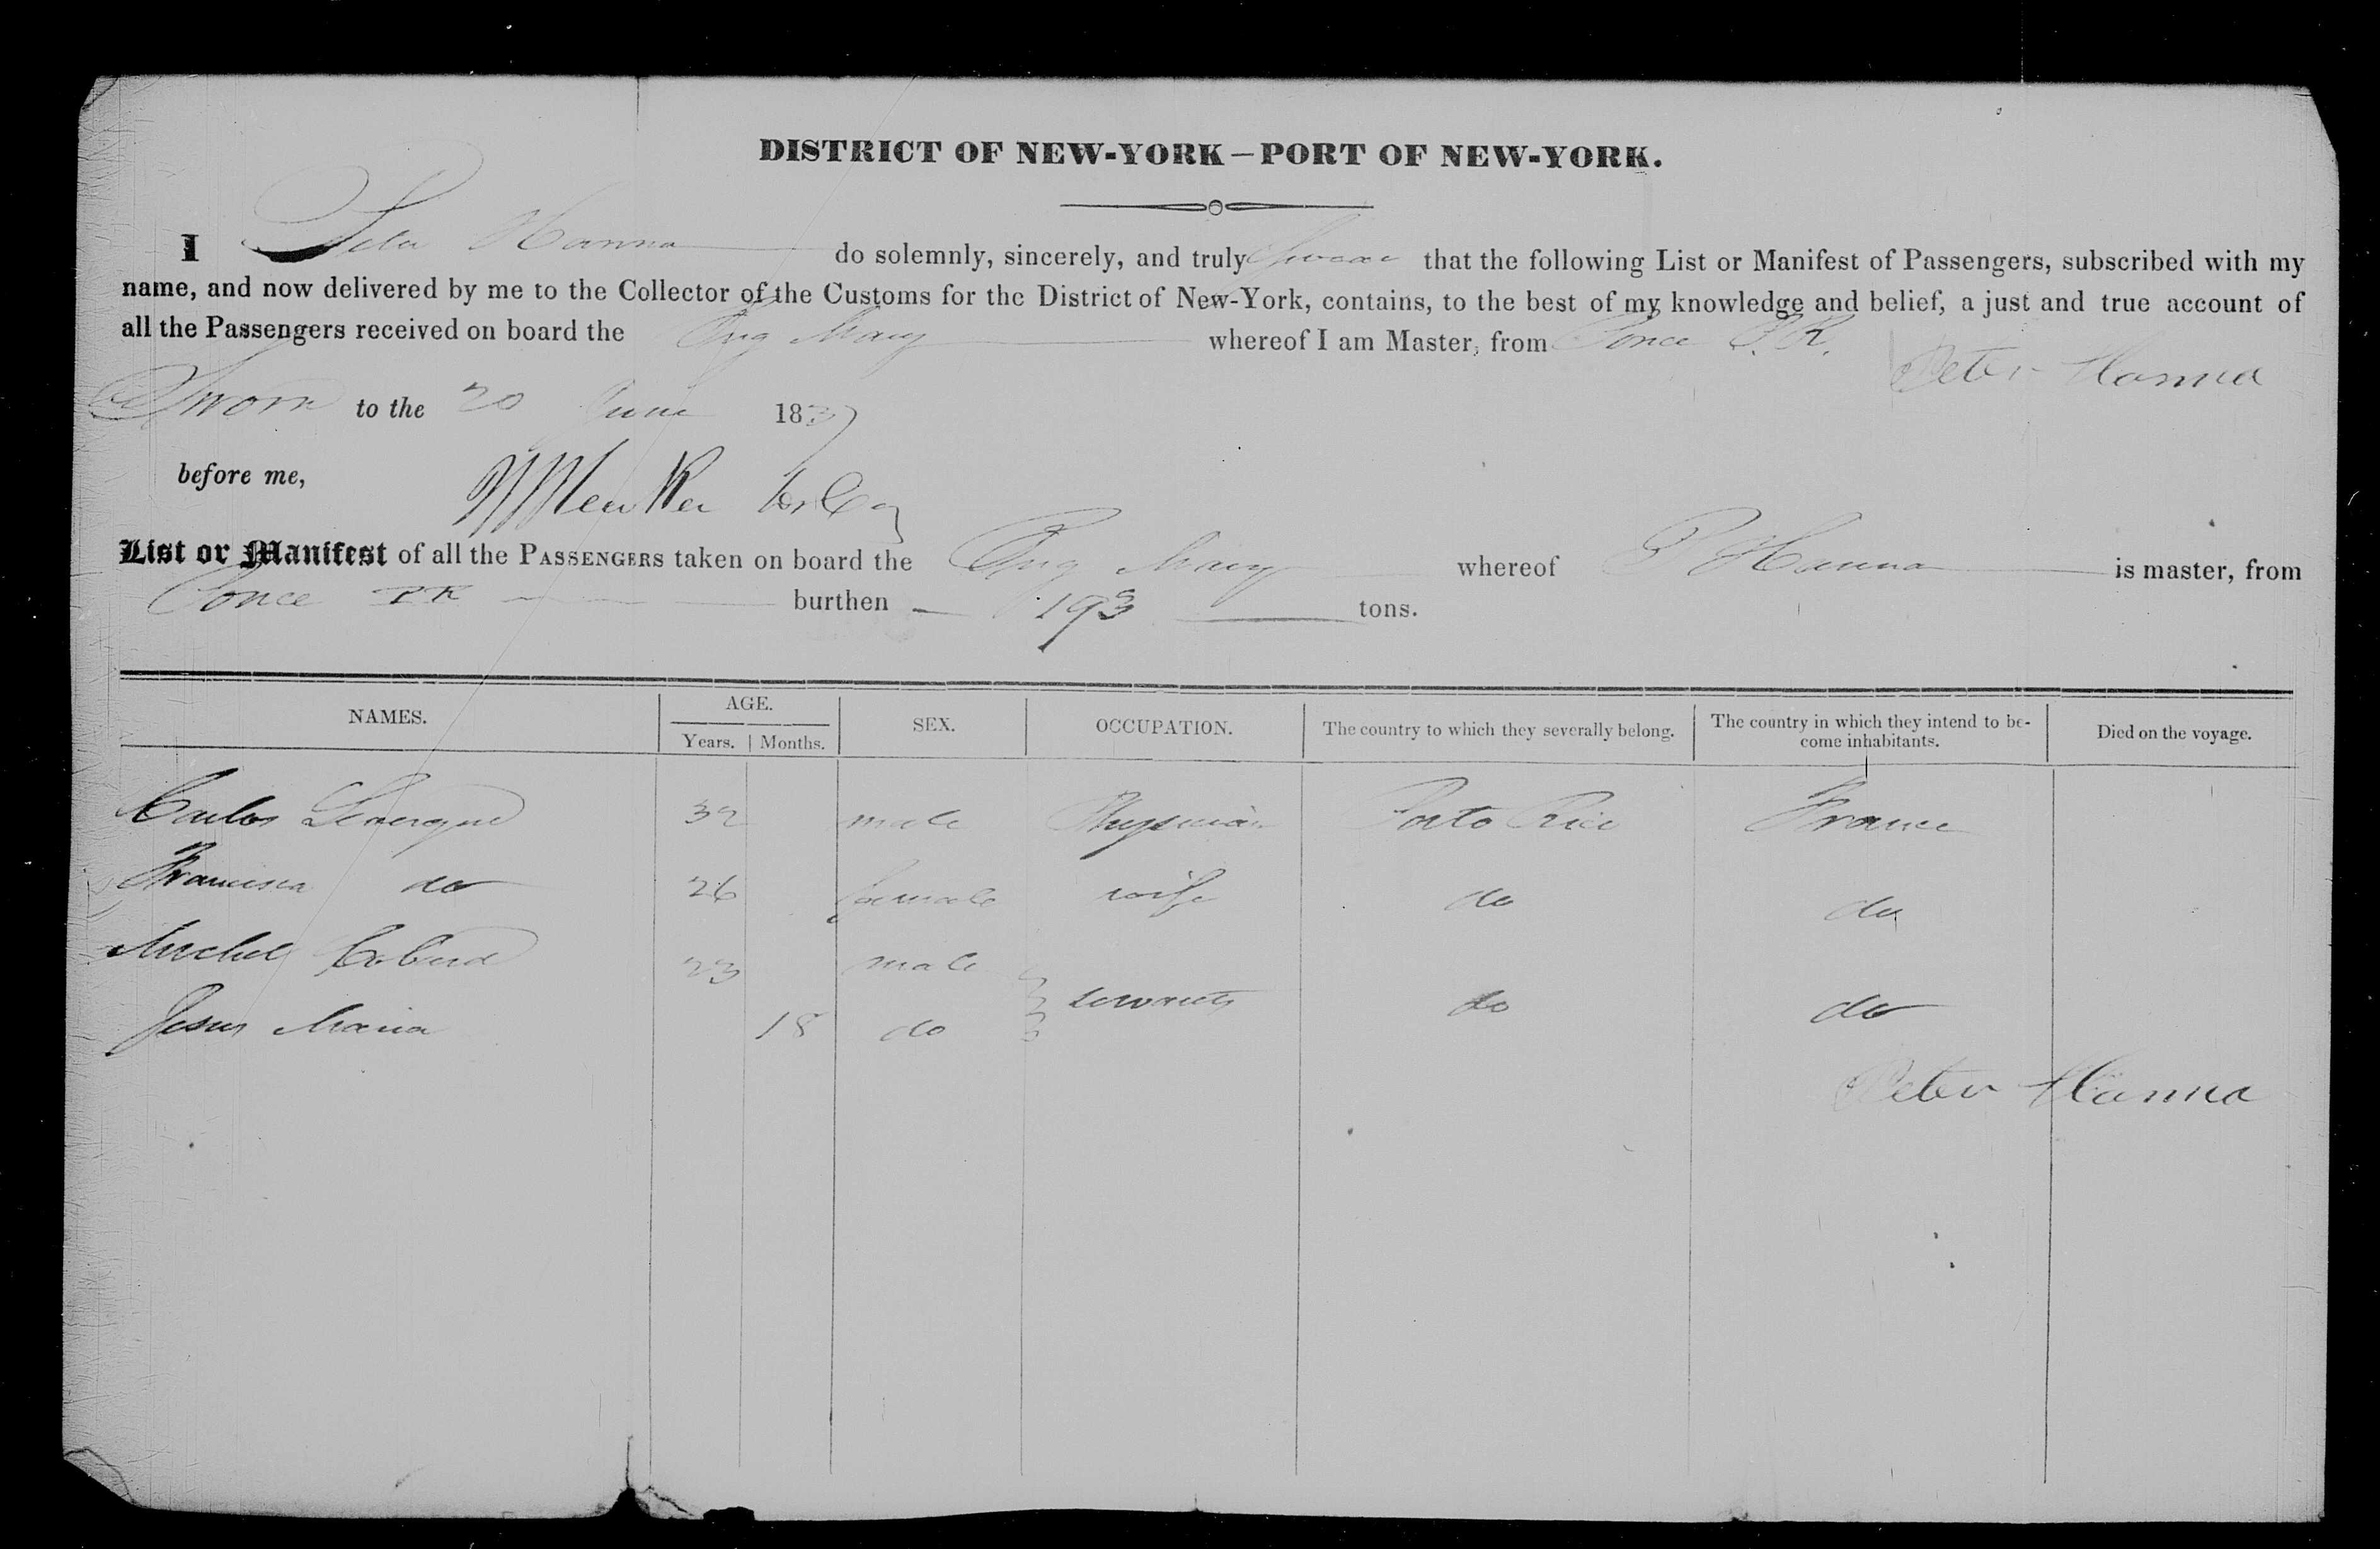 DISTRICT OF NEW-YORK – PORT OF NEW-YORK.
I Peter Hanna do solemnly, sincerely, and truly Swear that the following List or Manifest of Passengers, subscribed with my
name, and now delivered by me to the Collector of the Customs for the District of New-York, contains, to the best of my knowledge and belief, a just and true account of
all the Passengers received on board the Brig Mary whereof I am Master, from Ponce P.R.
Peter Hanna
Sworn to the 20 June 1837
before me,
List or Manifest of all the PASSENGERS taken on board the Brig Mary whereof P Hanna is master, from
Ponce PR burthen 193 tons.
NAMES. AGE. SEX. OCCUPATION. The country to which they severally belong. The country in which they intend to be- Died on the voyage.
Years. Months. come inhabitants.
Carlos 32 male Physician Porto Rico France
Francisca do 26 female wife do do
Michel 23 male
servants do do
Jesus Maria 18 do
Peter Hanna